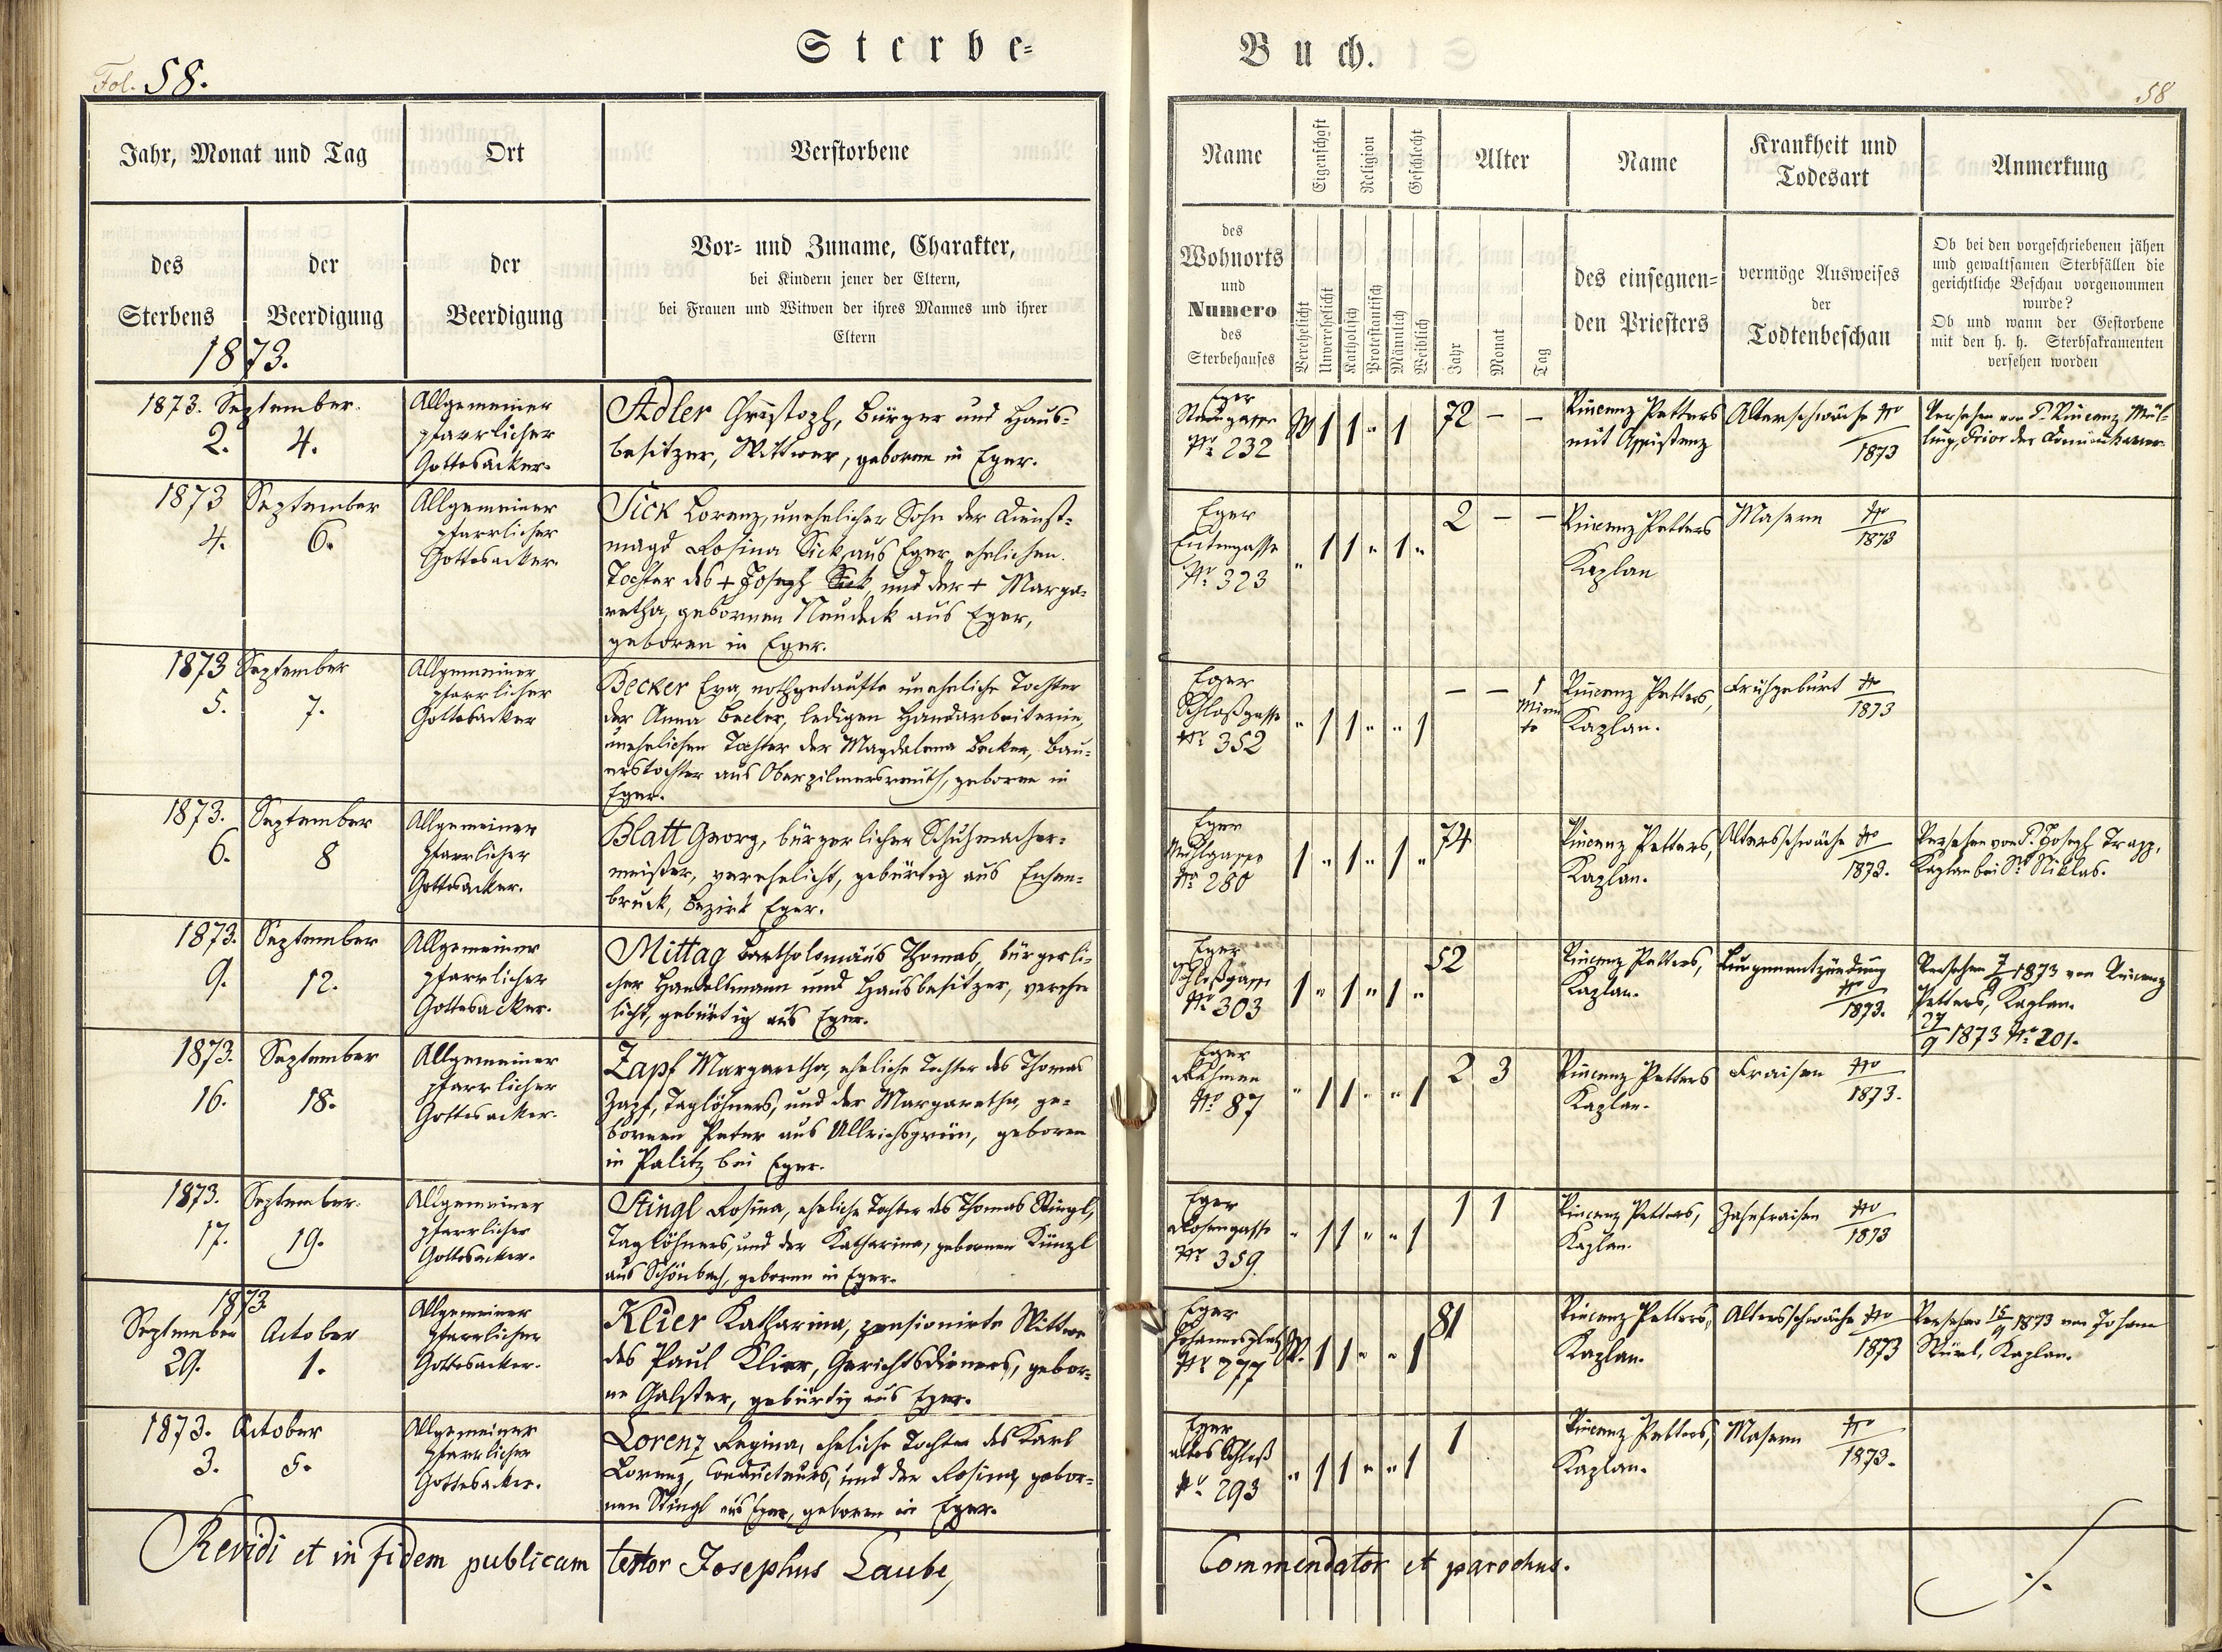 Sterbe=
Buch.
Fol. 58.
58
Jahr, Monat und Tag
Ort
Verstorbene
des
Sterbens
der
Beerdigung
der
Beerdigung
Vor= und Zuname, Charakter,
bei Kindern jener der Eltern,
bei Frauen und Witwen der ihres Mannes und ihrer
Eltern
Name
Eigenschaft
Religion
Geschlecht
Alter
Name
Krankheit und
Todesart
Anmerkung
des
Wohnorts
und
Numero
des
Sterbehauses
Verehelicht
Unverehelicht
Katholisch
Protestantisch
Männlich
Weiblich
Jahr
Monat
Tag
des einsegnen=
den Priesters
vermöge Ausweises
der
Todtenbeschau
Ob bei den vorgeschriebenen jähen
und gewaltsamen Sterbfällen die
gerichtliche Beschau vorgenommen
wurde?
Ob und wann der Gestorbene
mit den h. h. Sterbsakramenten
versehen worden
1873.
1873. September.
2. 4.
Allgemeiner
pfarrlicher
Gottesacker.
Adler Christoph, Bürger und Haus=
besitzer, Wittwer, geboren in Eger.
Eger
Nº 232
W 1 1 " 1
72 – –
Vincenz Petters
mit Assistenz
Altersschwäche Nro
1873
Versehen von P. Vincenz
Prior der Dominikaner.
1873 September
4. 6.
Allgemeiner
pfarrlicher
Gottesacker.
Sick Lorenz, unehelicher Sohn der Dienst=
magd Rosina Sick aus Eger, ehelichen
Tochter des + Joseph Sick und der + Marga=
retha, gebornen Neudeck aus Eger,
geboren in Eger.
Eger
Nº 323
" 1 1 " 1 "
2 – –
Vincenz Petters
Kaplan
Masern Nro
1873
1873 September
5. 7.
Allgemeiner
pfarrlicher
Gottesacker
Becker Eva, nothgetaufte uneheliche Tochter
der Anna Becker, ledigen Handarbeiterin,
unehelichen Tochter der Magdalena Becker, Bau=
erstochter aus Oberpilmersreuth, geboren in
Eger.
Eger
Schloßgasse
Nro 352
" 1 1 " " 1
– – 1
Minu
te
Vincenz Petters,
Kaplan.
Frühgeburt Nro
1873
1873. September
6. 8
Allgemeiner
pfarrlicher
Gottesacker.
Blatt Georg, bürgerlicher Schuhmacher=
meister, verehelicht, gebürtig aus Ensen=
bruck, Bezirk Eger.
Eger
Mühlgasse
Nro 280
1 " 1 " 1 "
74
Vincenz Petters,
Kaplan.
Altersschwäche Nro
1873.
Versehen von P. Joseph Trapp,
Kaplan bei St Niklas.
1873. September
9. 12.
Allgemeiner
pfarrlicher
Gottesacker.
Mittag Bartholomäus Thomas, bürgerli=
cher Handelsmann und Hausbesitzer, verehe
licht, gebürtig aus Eger.
Eger
Schloßgasse
Nro 303
1 " 1 " 1 "
52
Vincenz Petters,
Kaplan.
Lungenentzündung
Nro
1873.
Versehen 7/9 1873 von Vincenz
Petters, Kaplan.
27/9 1873 Nro 201.
1873. September
16. 18.
Allgemeiner
pfarrlicher
Gottesacker.
Zapf Margaretha, eheliche Tochter des Thomas
Zapf, Taglöhners, und der Margaretha, ge=
bornen Peter aus Ullrichsgrün, geboren
in Palitz bei Eger.
Eger
Rahmen
Nro 87
" 1 1 " " 1
2 3
Vincenz Petters
Kaplan.
Fraisen Nro
1873.
1873. September.
17. 19.
Allgemeiner
pfarrlicher
Gottesacker.
Stingl Rosina, eheliche Tochter des Thomas Stingl,
Taglöhners, und der Katharina, gebornen Künzl
aus Schönbach, geboren in Eger.
Eger
Rosengasse
Nro 359.
" 1 1 " " 1
1 1
Vincenz Petters,
Kaplan.
Zahnfraisen Nro
1873
1873
September October
29. 1.
Allgemeiner
pfarrlicher
Gottesacker.
Klier Katharina, pensionirte Wittwe
des Paul Klier, Gerichtsdieners, gebor=
ne Galster, gebürtig aus Eger.
Eger
Johannesplatz
Nro 277
W. 1 1 " " 1
81
Vincenz Petters,
Kaplan.
Altersschwäche Nro
1873
Versehen 15/9 1873 von Johann
Würl, Kaplan.
1873. October
3. 5.
Allgemeiner
pfarrlicher
Gottesacker.
Lorenz Regina, eheliche Tochter des Karl
Lorenz, Conducteurs, und der Rosina, gebor=
nen Stingl aus Eger, geboren in Eger.
Eger
altes Schloß
Nro 293
" 1 1 " " 1
1
Vincenz Petters,
Kaplan.
Masern Nro
1873.
Revidi et in fidem publicam testor Josephus Laube,
Commendator et parochus.